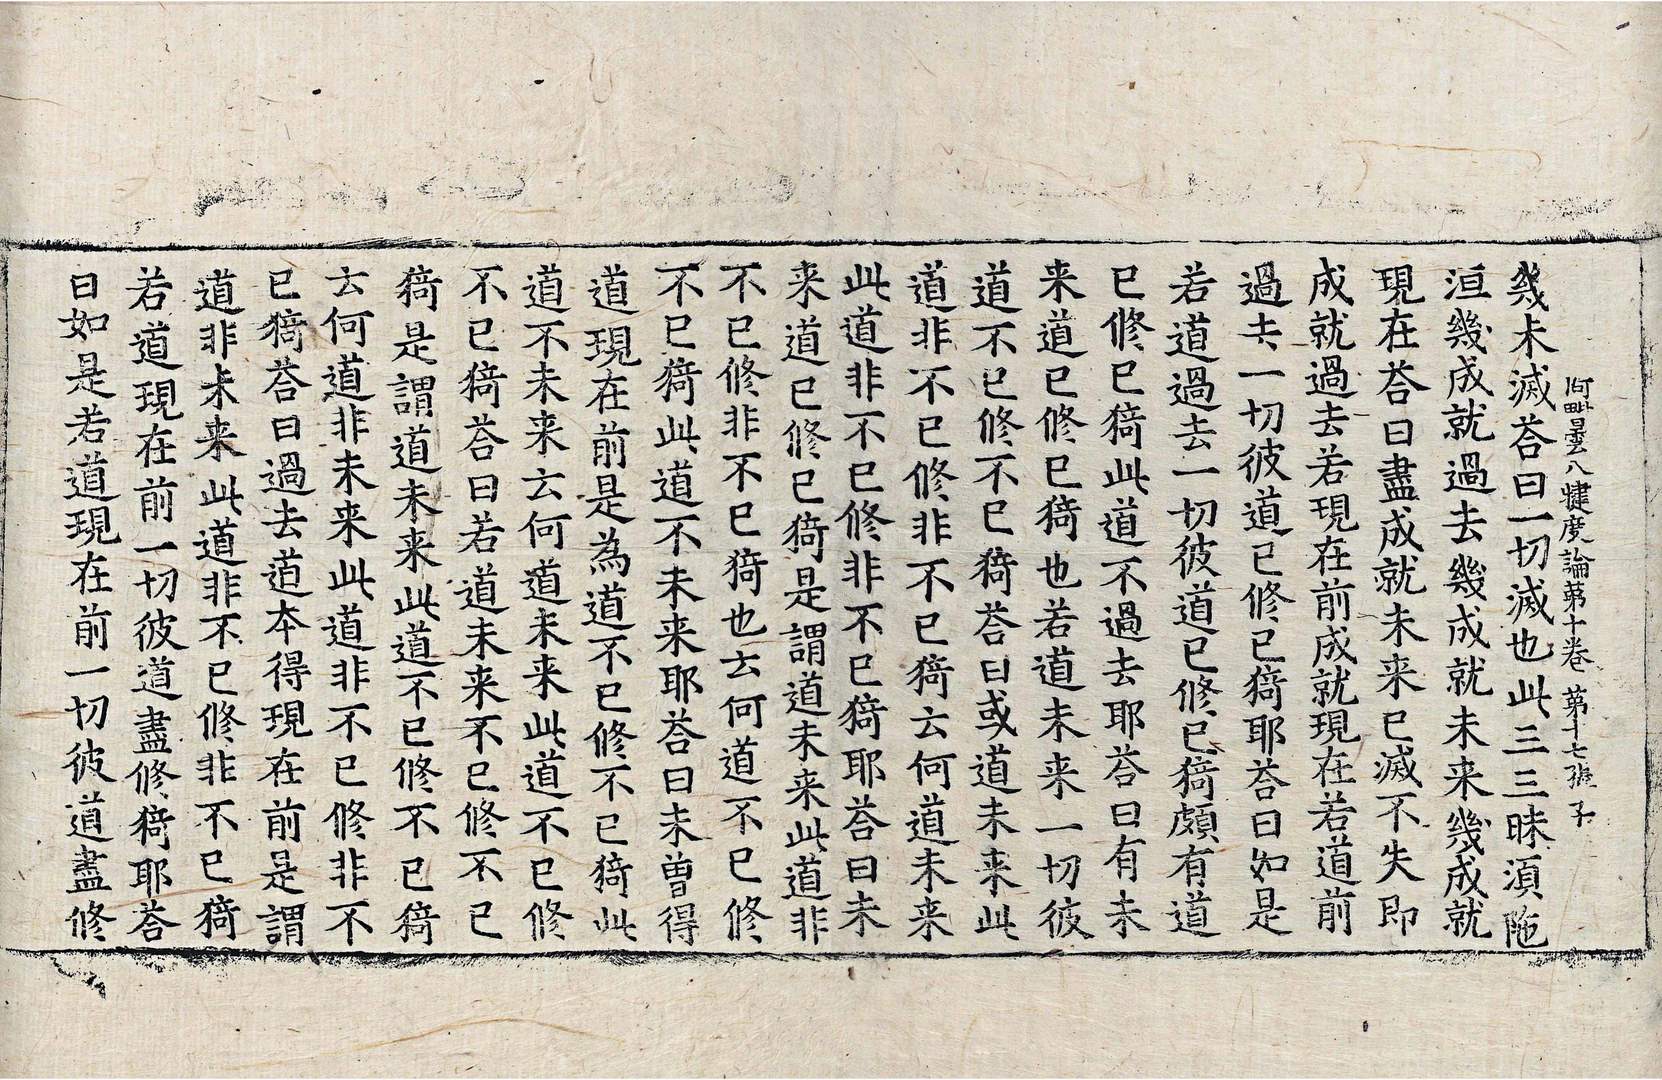 阿毗曇八犍度論第十卷 第十七張 子
幾未滅荅曰一切滅也此三三昧湏陁
洹幾成就過去幾成就未来幾成就
現在荅曰盡成就未来已滅不失即
成就過去若現在前成就現在若道前
過去一切彼道已修已猗耶荅曰如是
若道過去一切彼道已修已猗頗有道
已修已猗此道不過去耶荅曰有未
来道已修已猗也若道未来一切彼
道不已修不已猗荅曰或道未来此
道非不已修非不已猗云何道未来
此道非不已修非不已猗耶荅曰未
来道已修已猗是謂道未来此道非
不已修非不已猗也云何道不已修
不已猗此道不未来耶荅曰未曽得
道現在前是為道不已修不已猗此
道不未来云何道未来此道不已修
不已猗荅曰若道未来不已修不已
猗是謂道未来此道不已修不已猗
云何道非未来此道非不已修非不
已猗荅曰過去道本得現在前是謂
道非未来此道非不已修非不已猗
若道現在前一切彼道盡修猗耶荅
曰如是若道現在前一切彼道盡修